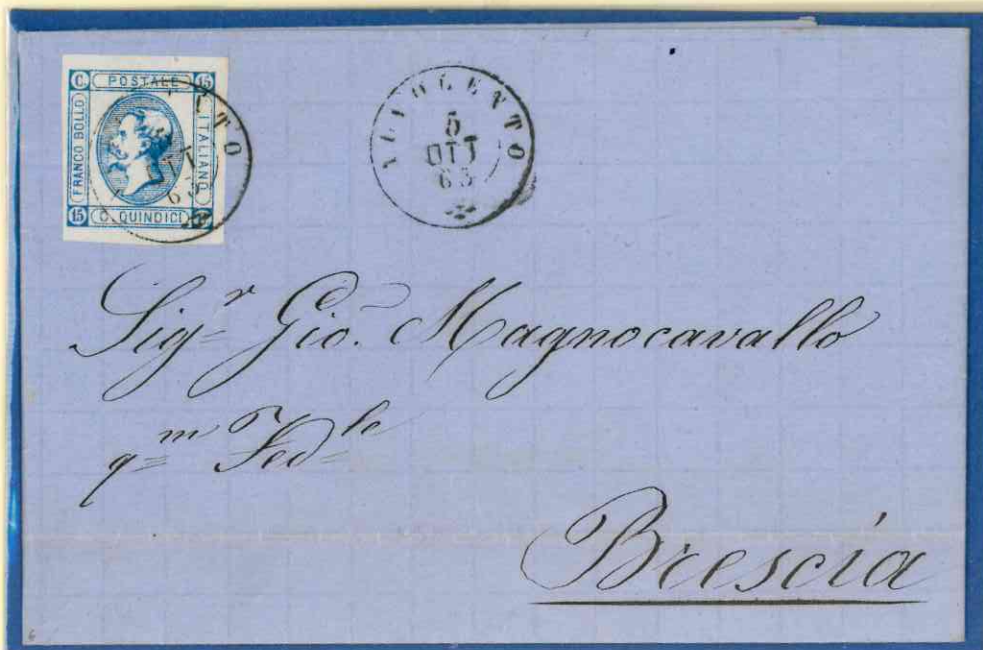 C. POSTALE 15
FRANCO BOLLO
ITALIANO
15 C. QUINDICI
5
OTT
63
Sig.r Gio. Magnocavallo
q.m Fed.le
Brescia
6